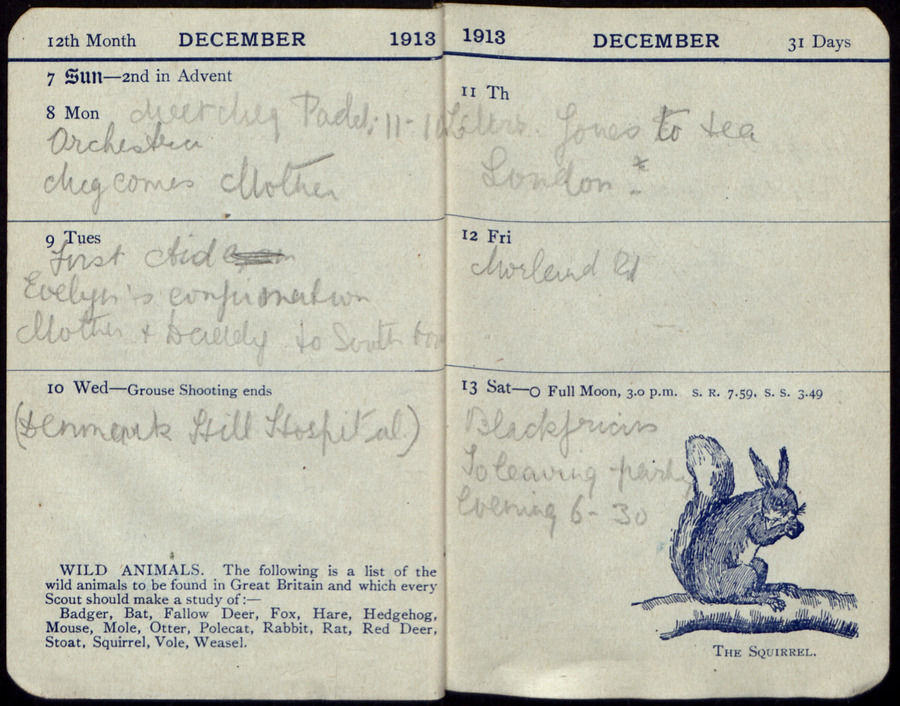 12th Month DECEMBER 1913
7 Sun—2nd in Advent
8 Mon Meet Meg Padd. 11-
Orchestra
Meg comes Mother
9 Tues
First Aid
Evelyn's confirmation
Mother & Daddy to South
10 Wed—Grouse Shooting ends
(Denmark Hill Hospital)
WILD ANIMALS. The following is a list of the
wild animals to be found in Great Britain and which every
Scout should make a study of:—
Badger, Bat, Fallow Deer, Fox, Hare, Hedgehog,
Mouse, Mole, Otter, Polecat, Rabbit, Rat, Red Deer,
Stoat, Squirrel, Vole, Weasel.
1913 DECEMBER 31 Days
11 Th
Jones to tea
London
12 Fri
Morland Rd
13 Sat—O Full Moon, 3.0 p.m. S. R. 7.59. S. S. 3.49
Blackfriars
To leaving party
Evening 6-30
THE SQUIRREL.